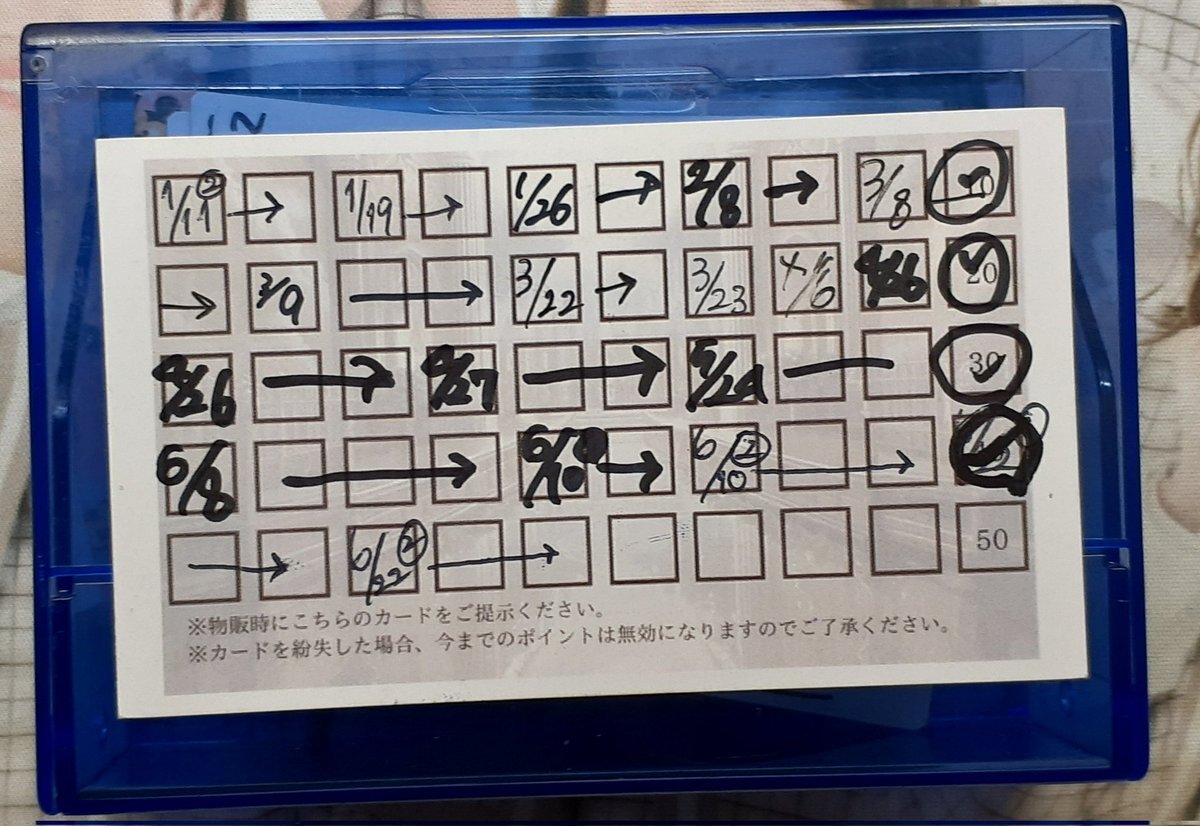 1/11② → 1/19 → 1/26 → 2/8 → 3/8 10
→ 3/9 → 3/22 → 3/23 4/6 4/26 20
4/26 → 4/27 → 5/24 — 30
6/8 → 6/10① → 6/10② →
→ 6/22② → 50
※物販時にこちらのカードをご提示ください。
※カードを紛失した場合、今までのポイントは無効になりますのでご了承ください。